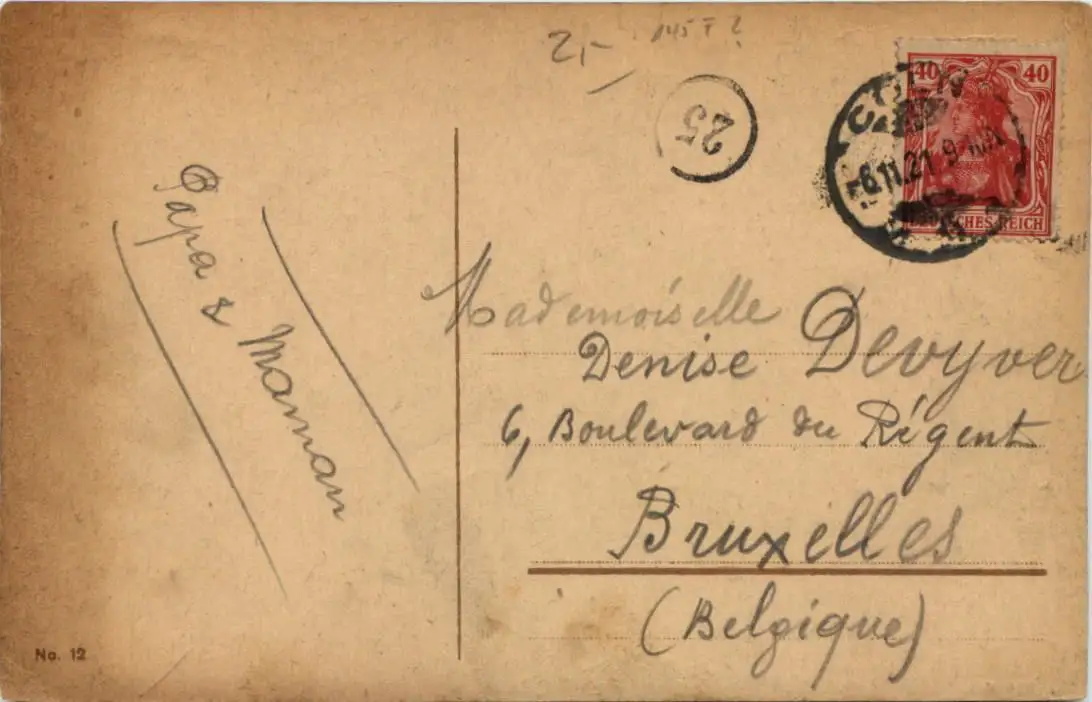 2,-
145 I ?
25
40 40
CÖLN
6.11.21. 9-10V.
DEUTSCHES REICH
Papa & Maman
Mademoiselle
Denise Devyver
6, Boulevard du Régent
Bruxelles
(Belgique)
No. 12